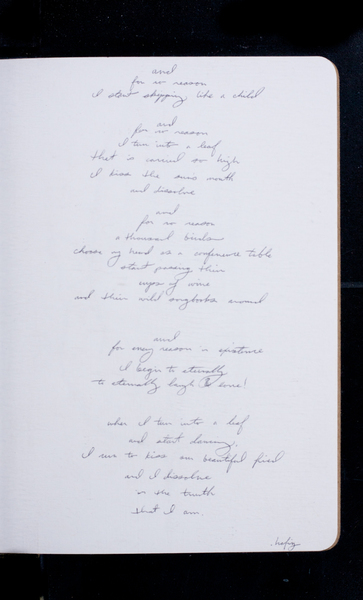 and
for no reason
I start skipping like a child
and
for no reason
I turn into a leaf
that is carried so high
I kiss the sun's mouth
and dissolve
and
for no reason
a thousand birds
choose my head as a conference table
start passing their
cups of wine
and their wild songbooks around
and
for every reason in existence
I begin to eternally
to eternally laugh & love!
when I turn into a leaf
and start dancing,
I run to kiss our beautiful friend
and I dissolve
in the truth
that I am.
. hafiz